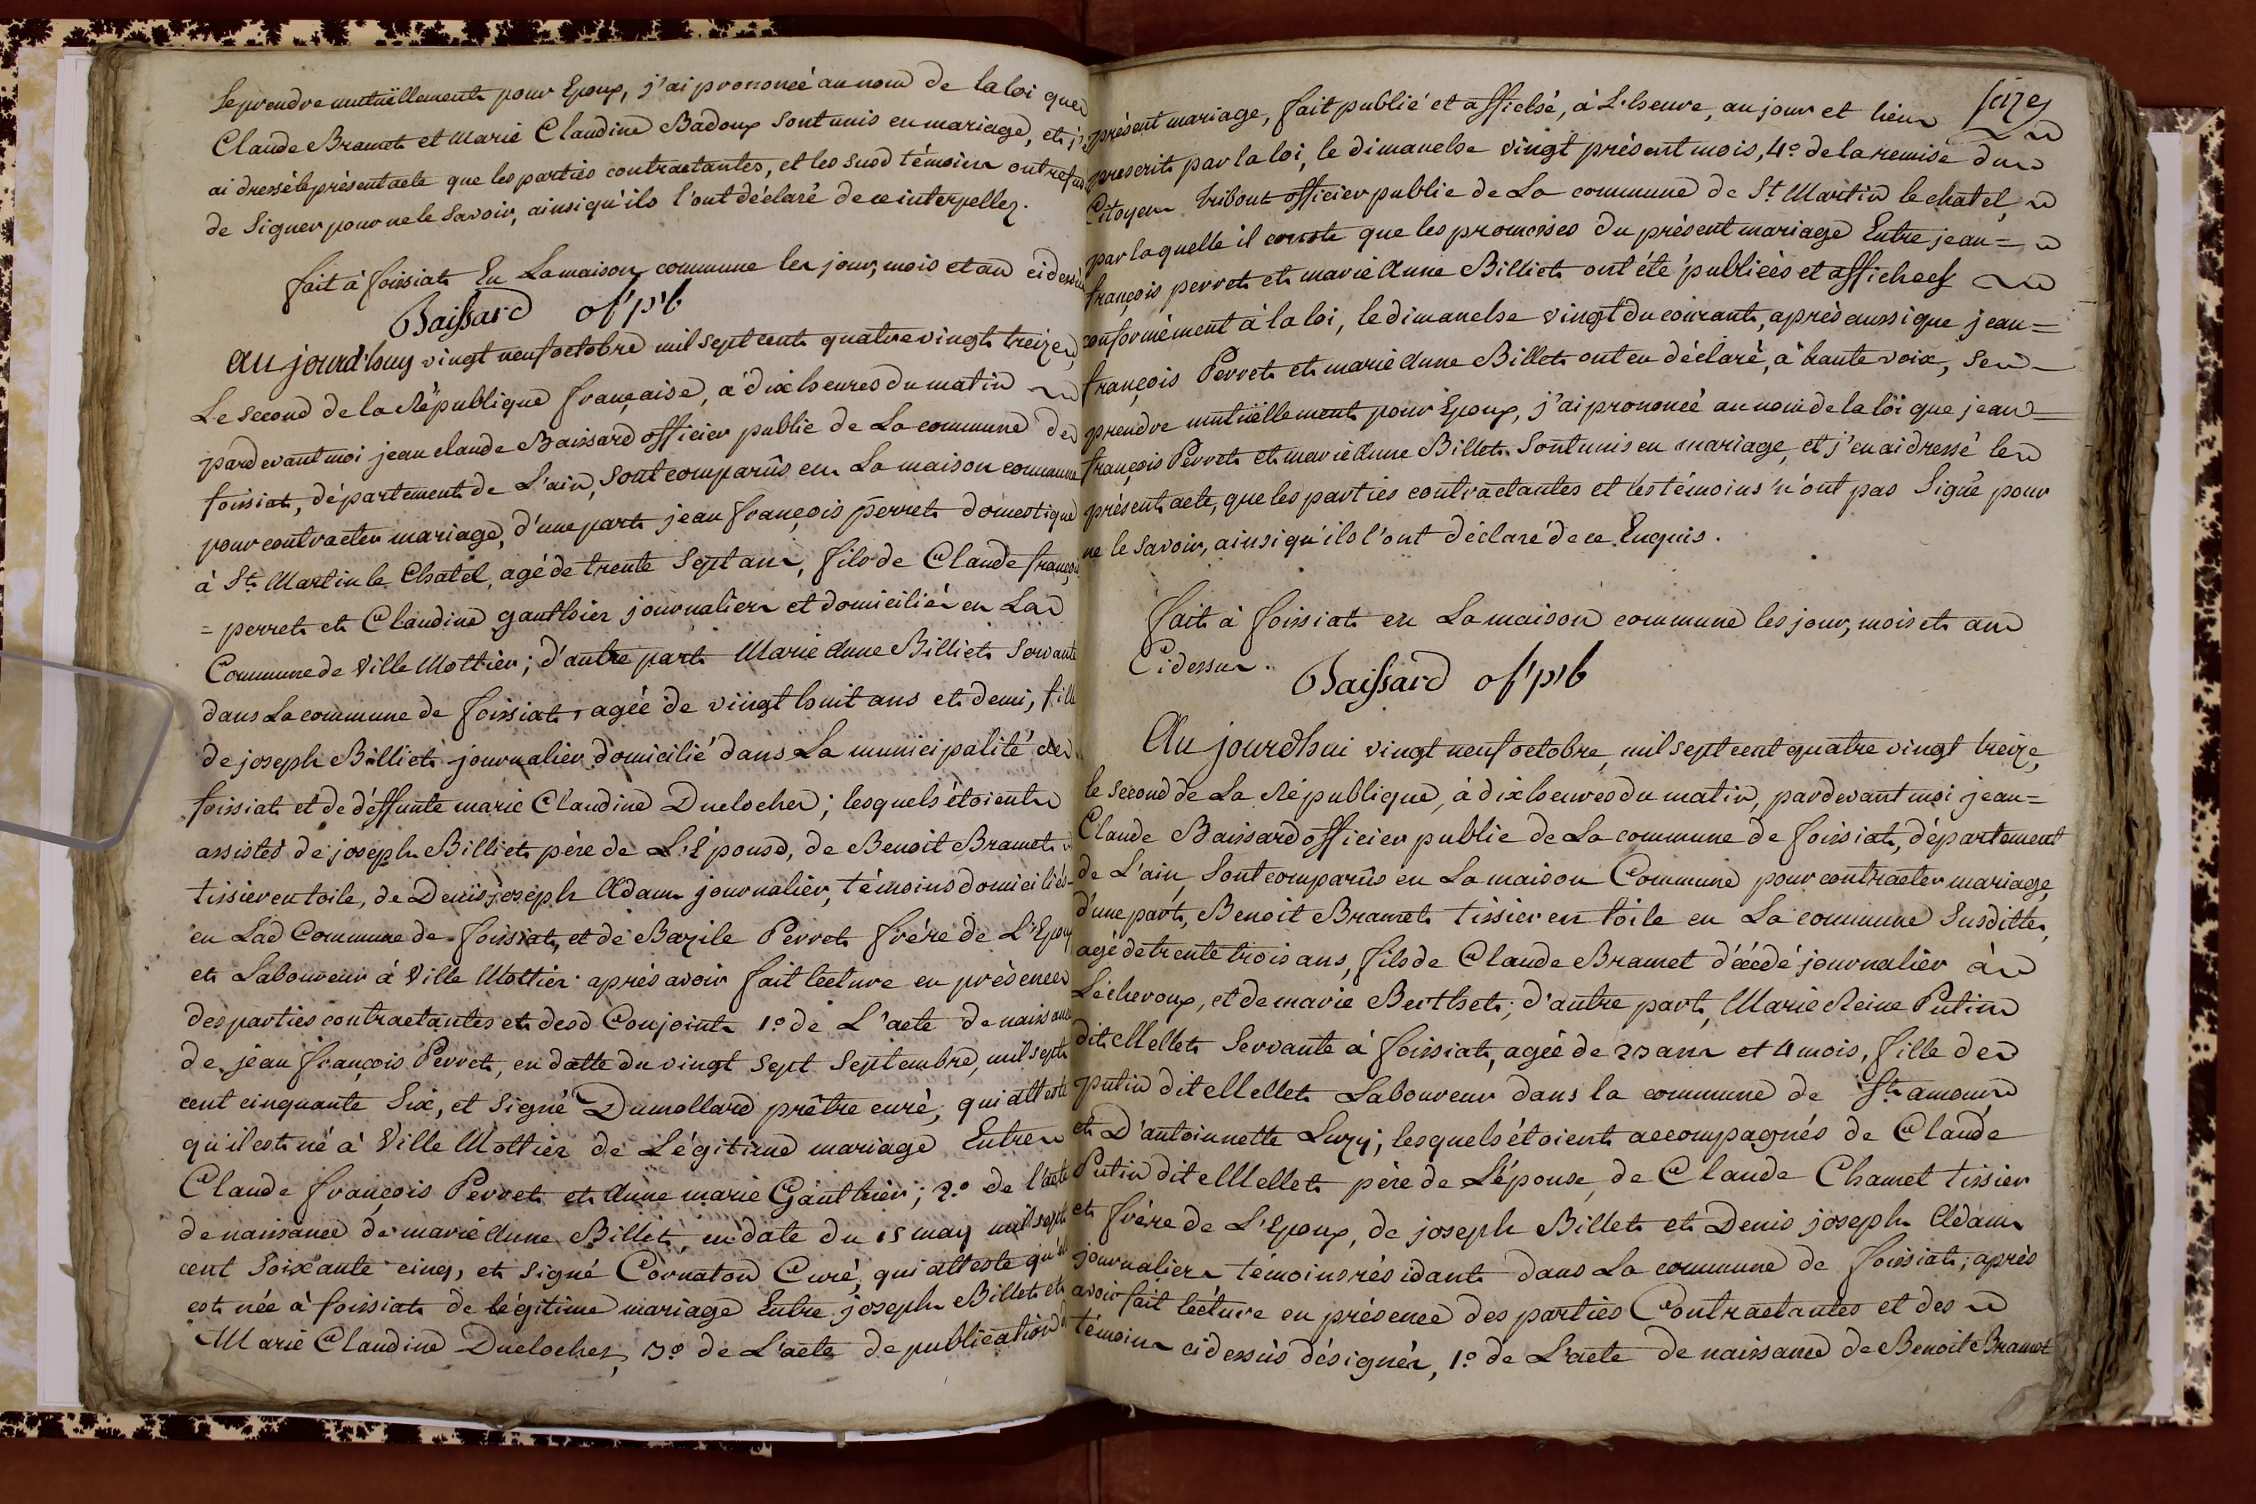 Se prendre mutuëllement pour Epoux, j'ai prononcé au nom de la loi que
Claude Bramet et Marie Claudine Badoux sont unis en mariage, et j'
ai dressé le présent acte que les parties contractantes, et les susd témoins ont refusé
de signer pour ne le savoir, ainsi qu'ils l'ont déclaré de ce interpellez.
fait à foissiat En La maison commune les jour, mois et an ci dessus
Baissard of' p'b
Au jourd'huy vingt neuf octobre mil sept cent quatre vingt treize,
Le second de la République française, à dix heures du matin
pardevant moi jean claude Baissard officier public de La commune de
foissiat, département de L'ain, sont comparûs en La maison commune
pour contracter mariage, d'une part jean françois perret domestique
à St Martin le Chatel, agé de trente sept ans, fils de Claude françois
= perret et Claudine gauthier journaliers et domiciliés en La
Commune de Ville Mottier; d'autre part Marie Anne Billiet Servante
dans La commune de foissiat, agée de vingt huit ans et demi, fille
de joseph Billiet journalier domicilié dans La municipalité de
foissiat et de déffunte marie Claudine Duclocher; lesquels étoient
assistés de joseph Billiet père de L'Épouse, de Benoit Bramet
tissier en toile, de Denis joseph Adam journalier, témoins domiciliés
en Lad Commune de foissiat, et de Bazile Perret frère de L'Epoux
et Laboureur à Ville Mottier. après avoir fait lecture en présence
des parties contractantes et desd Conjoints 1.º de L'acte de naissance
de jean françois Perret, en datte du vingt sept Septembre, mil sept
cent cinquante Six, et signé Dumollard prêtre curé, qui atteste
qu'il est né à Ville Mottier de Légitime mariage Entre
Claude françois Perret et Anne marie Gauthier; 2.º de l'acte
de naissance de marie Anne Billet, en date du 15 may mil sept
cent soixante cinq, et signé Cornaton Curé, qui atteste qu'elle
est née à foissiat de légitime mariage Entre joseph Billet et
Marie Claudine Duclocher, 3.º de L'acte de publication
seize
présent mariage, fait publié et affiché, à L'heure, au jour et lieu
prescrit par la loi, le dimanche vingt présent mois, 4.º de la remise du
Citoyen Tribout officier public de La commune de St Martin le chatel,
par laquelle il conste que les promesses du présent mariage Entre jean=
françois perret et marie Anne Billiet ont été publiées et affichées
conformément à la loi, le dimanche vingt du courant, après aussi que jean=
françois Perret et marie Anne Billet ont eu déclaré, à haute voix, se
prendre mutuëllement pour Epoux, j'ai prononcé au nom de la loi que jean=
françois Perret et marie Anne Billet sont unis en mariage, et j'en ai dressé le
présent acte, que les parties contractantes et les témoins n'ont pas Signé pour
ne le savoir, ainsi qu'ils l'ont déclaré de ce Enquis.
fait à foissiat en La maison commune les jour, mois et an
Cidessus. Baissard of' p'b
Au jourd'hui vingt neuf octobre, mil sept cent quatre vingt treize,
le second de La République, à dix heures du matin, pardevant moi jean=
Claude Baissard officier public de La commune de foissiat, département
de L'ain, sont comparûs en La maison Commune pour contracter mariage,
d'une part, Benoit Bramet tissier en toile en La commune Susditte,
agé de trente trois ans, fils de Claude Bramet décédé journalier à
Lécheroux, et de marie Berthet; d'autre part, Marie Reine Putin
dit Mellet Servante à foissiat, agée de 23 ans et 4 mois, fille de
putin dit Mellet Laboureur dans la commune de St amour
et D'antoinnette Luzy; lesquels étoient accompagnés de Claude
Putin dit Mellet père de L'épouse, de Claude Chamet tissier
et frère de L'Epoux, de joseph Billet et Denis joseph Adam
journaliers témoins résidants dans La commune de foissiat; après
avoir fait lecture en présence des parties Contractantes et des
témoins cidessus désignés, 1.º de L'acte de naissance de Benoit Bramet